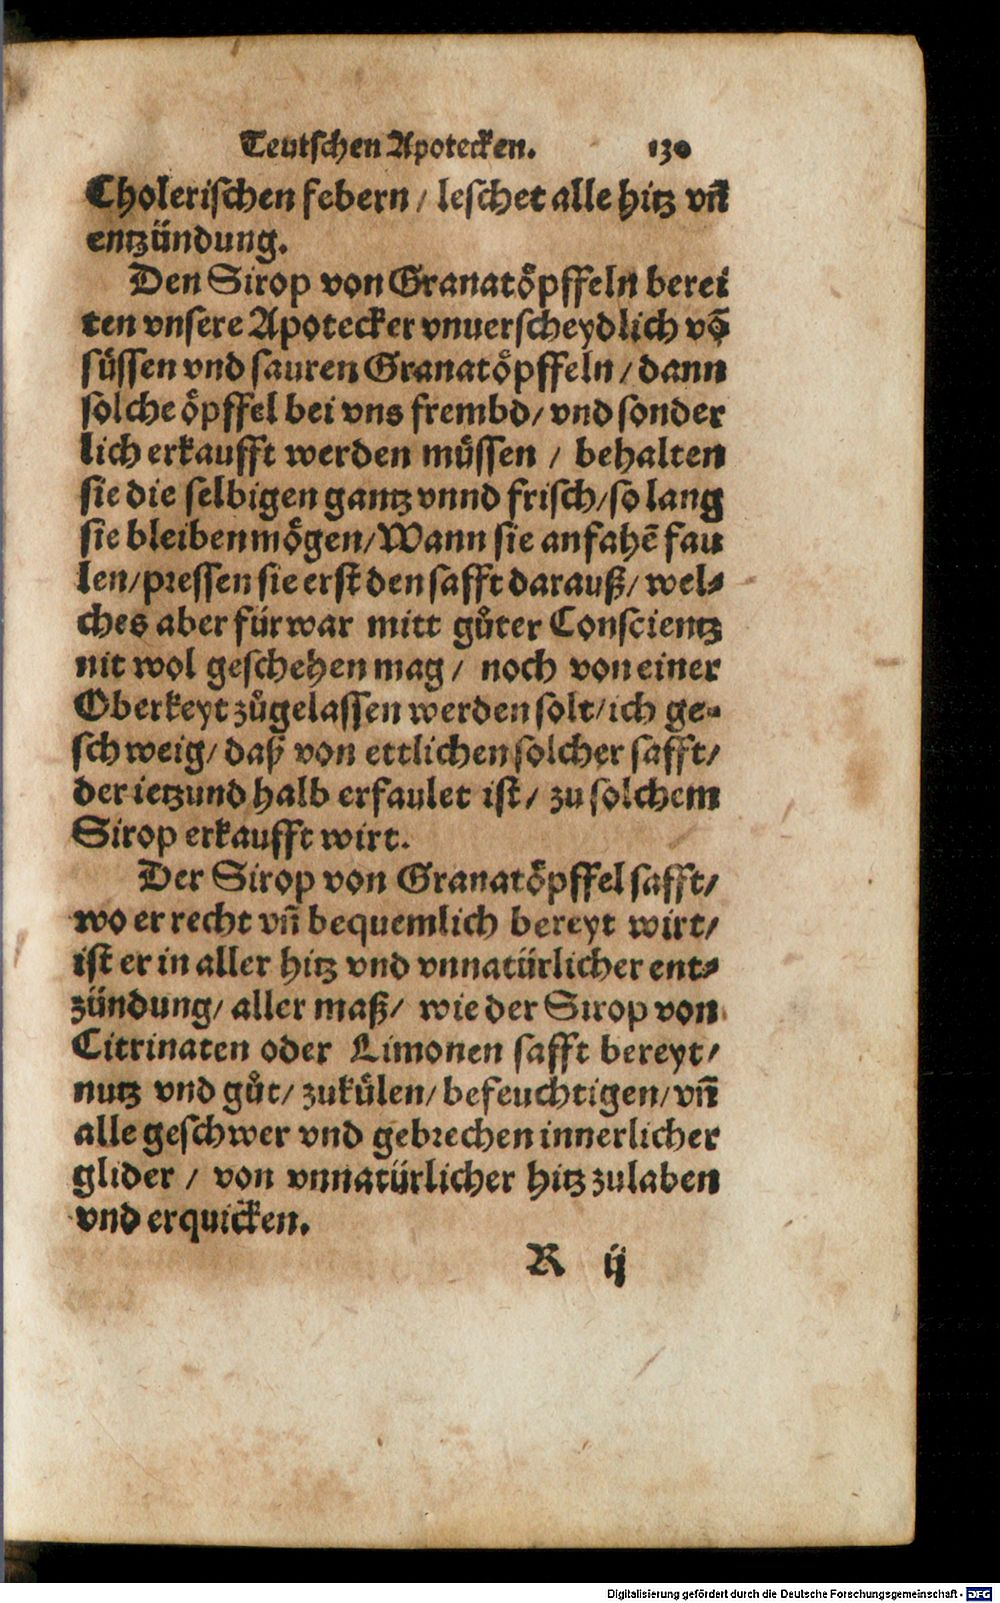 Teutschen Apotecken. 130
Cholerischen febern / leschet alle hitz vñ
entzündung.
Den Sirop von Granatöpffeln berei
ten vnsere Apotecker vnuerscheydlich võ
süssen vnd sauren Granatöpffeln / dann
solche öpffel bei vns frembd / vnd sonder
lich erkaufft werden müssen / behalten
sie die selbigen gantz vnnd frisch / so lang
sie bleiben mögen / Wann sie anfahē fau
len / pressen sie erst den safft darauß / wel⸗
ches aber fürwar mitt gůter Conscientz
nit wol geschehen mag / noch von einer
Oberkeyt zůgelassen werden solt / ich ge⸗
schweig / daß von ettlichen solcher safft /
der ietzund halb erfaulet ist / zu solchem
Sirop erkaufft wirt.
Der Sirop von Granatöpffel safft /
wo er recht vñ bequemlich bereyt wirt /
ist er in aller hitz vnd vnnatürlicher ent⸗
zündung / aller maß / wie der Sirop von
Citrinaten oder Limonen safft bereyt /
nutz vnd gůt / zukülen / befeuchtigen / vñ
alle geschwer vnd gebrechen innerlicher
glider / von vnnatürlicher hitz zulaben
vnd erquicken.
R ij
Digitalisierung gefördert durch die Deutsche Forschungsgemeinschaft - DFG